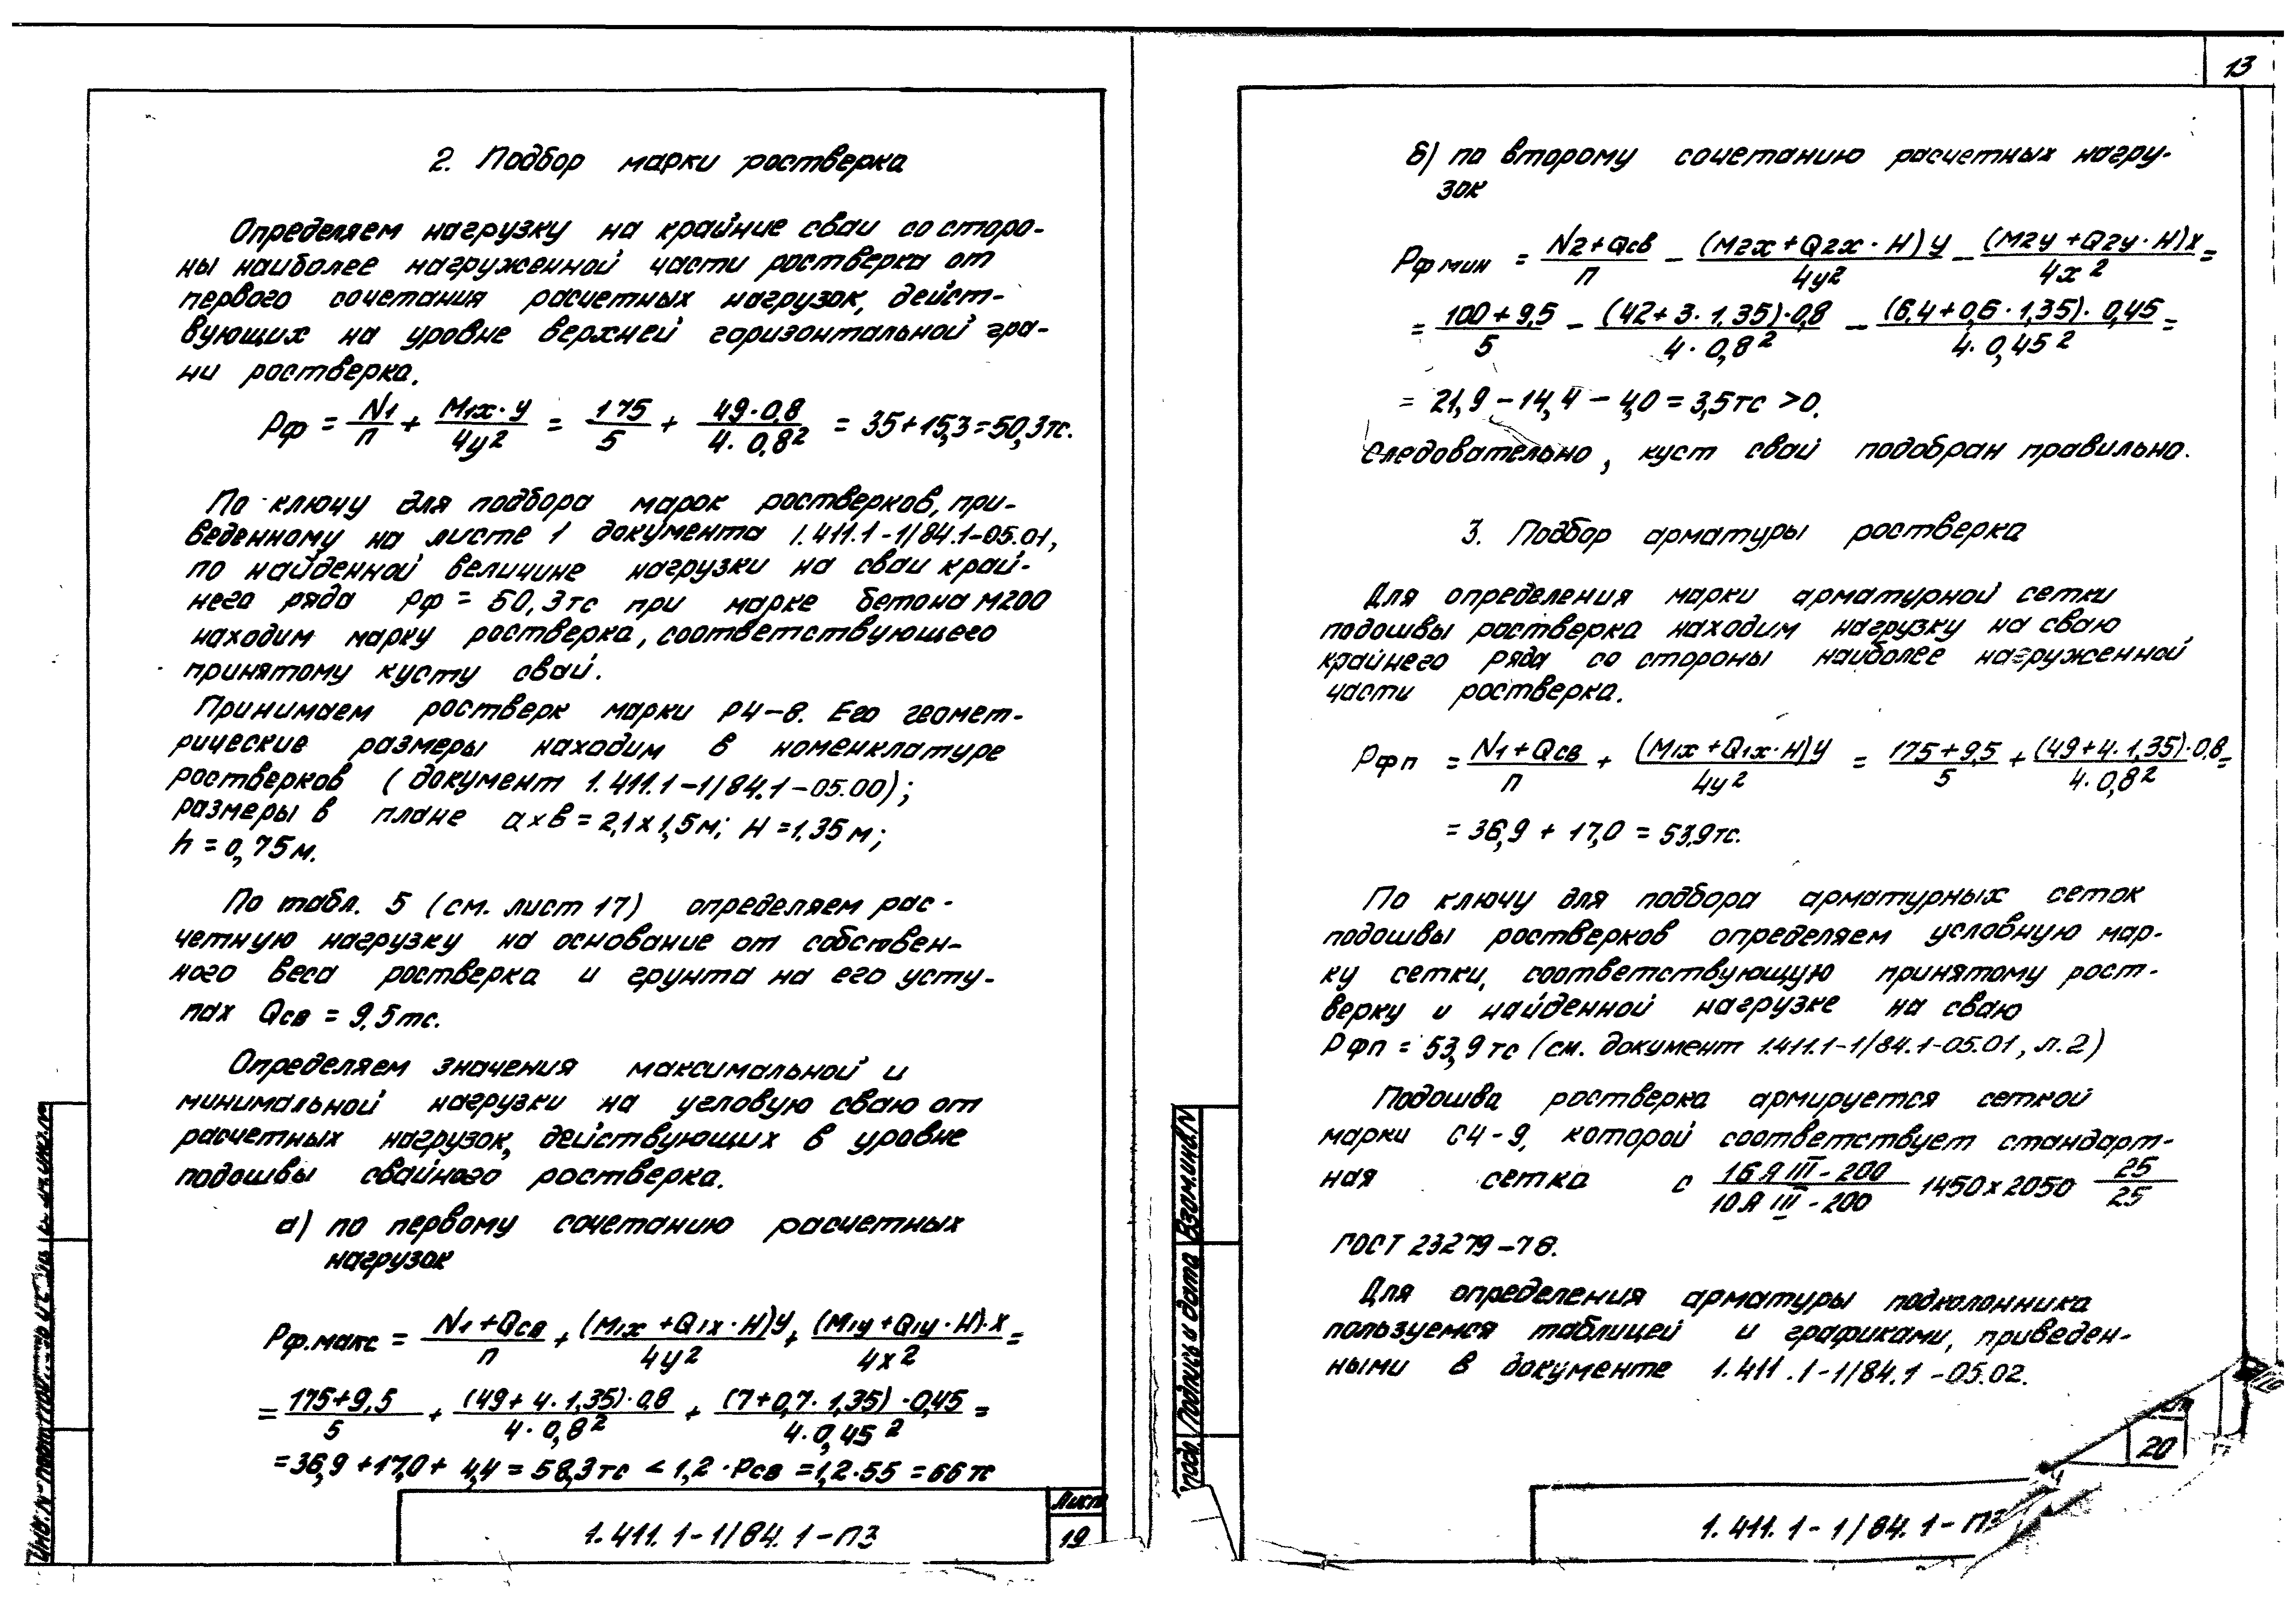 13
2. Подбор марки ростверка
Определяем нагрузку на крайние сваи со сторо-
ны наиболее нагруженной части ростверка от
первого сочетания расчетных нагрузок, дейст-
вующих на уровне верхней горизонтальной гра-
ни ростверка.
Рф = N1/п + М1х·У/4У² = 175/5 + 49·0,8/4·0,8² = 35+15,3=50,3тс.
По ключу для подбора марок ростверков, при-
веденному на листе 1 документа 1.411.1-1/84.1-05.01,
по найденной величине нагрузки на сваи край-
него ряда Рф = 50,3тс при марке бетона М200
находим марку ростверка, соответствующего
принятому кусту свай.
Принимаем ростверк марки Р4-8. Его геомет-
рические размеры находим в номенклатуре
ростверков (документ 1.411.1-1/84.1-05.00);
размеры в плане а×в=2,1×1,5м; Н=1,35м;
h=0,75м.
По табл. 5 (см. лист 17) определяем рас-
четную нагрузку на основание от собствен-
ного веса ростверка и грунта на его усту-
пах Qсв = 9,5тс.
Определяем значения максимальной и
минимальной нагрузки на угловую сваю от
расчетных нагрузок, действующих в уровне
подошвы свайного ростверка.
а) по первому сочетанию расчетных
нагрузок
Рф.макс = N1+Qсв/п + (М1х+Q1х·Н)У/4У² + (М1у+Q1у·Н)·Х/4Х² =
= 175+9,5/5 + (49+4·1,35)·0,8/4·0,8² + (7+0,7·1,35)·0,45/4·0,45² =
=36,9+17,0+4,4=58,3тс < 1,2·Рсв=1,2·55=66тс
1.411.1-1/84.1-ПЗ
Лист
19
б) по второму сочетанию расчетных нагру-
зок
Рф мин = N2+Qсв/п - (М2х+Q2х·Н)У/4У² - (М2у+Q2у·Н)Х/4Х² =
= 100+9,5/5 - (42+3·1,35)·0,8/4·0,8² - (6,4+0,6·1,35)·0,45/4·0,45² =
= 21,9-14,4-4,0=3,5тс >0.
Следовательно, куст свай подобран правильно.
3. Подбор арматуры ростверка
Для определения марки арматурной сетки
подошвы ростверка находим нагрузку на сваю
крайнего ряда со стороны наиболее нагруженной
части ростверка.
Рфп = N1+Qсв/п + (М1х+Q1х·Н)У/4У² = 175+9,5/5 + (49+4·1,35)·0,8/4·0,8² =
= 36,9 + 17,0 = 53,9тс.
По ключу для подбора арматурных сеток
подошвы ростверков определяем условную мар-
ку сетки, соответствующую принятому рост-
верку и найденной нагрузке на сваю
Рфп = 53,9тс (см. документ 1.411.1-1/84.1-05.01, л.2)
Подошва ростверка армируется сеткой
марки С4-9, которой соответствует стандарт-
ная сетка С 16АIII-200/10АIII-200 1450×2050 25/25
ГОСТ 23279-78.
Для определения арматуры подколонника
пользуемся таблицей и графиками, приведен-
ными в документе 1.411.1-1/84.1-05.02.
Подпись и дата
Взам.инв.N
20
1.411.1-1/84.1-ПЗ